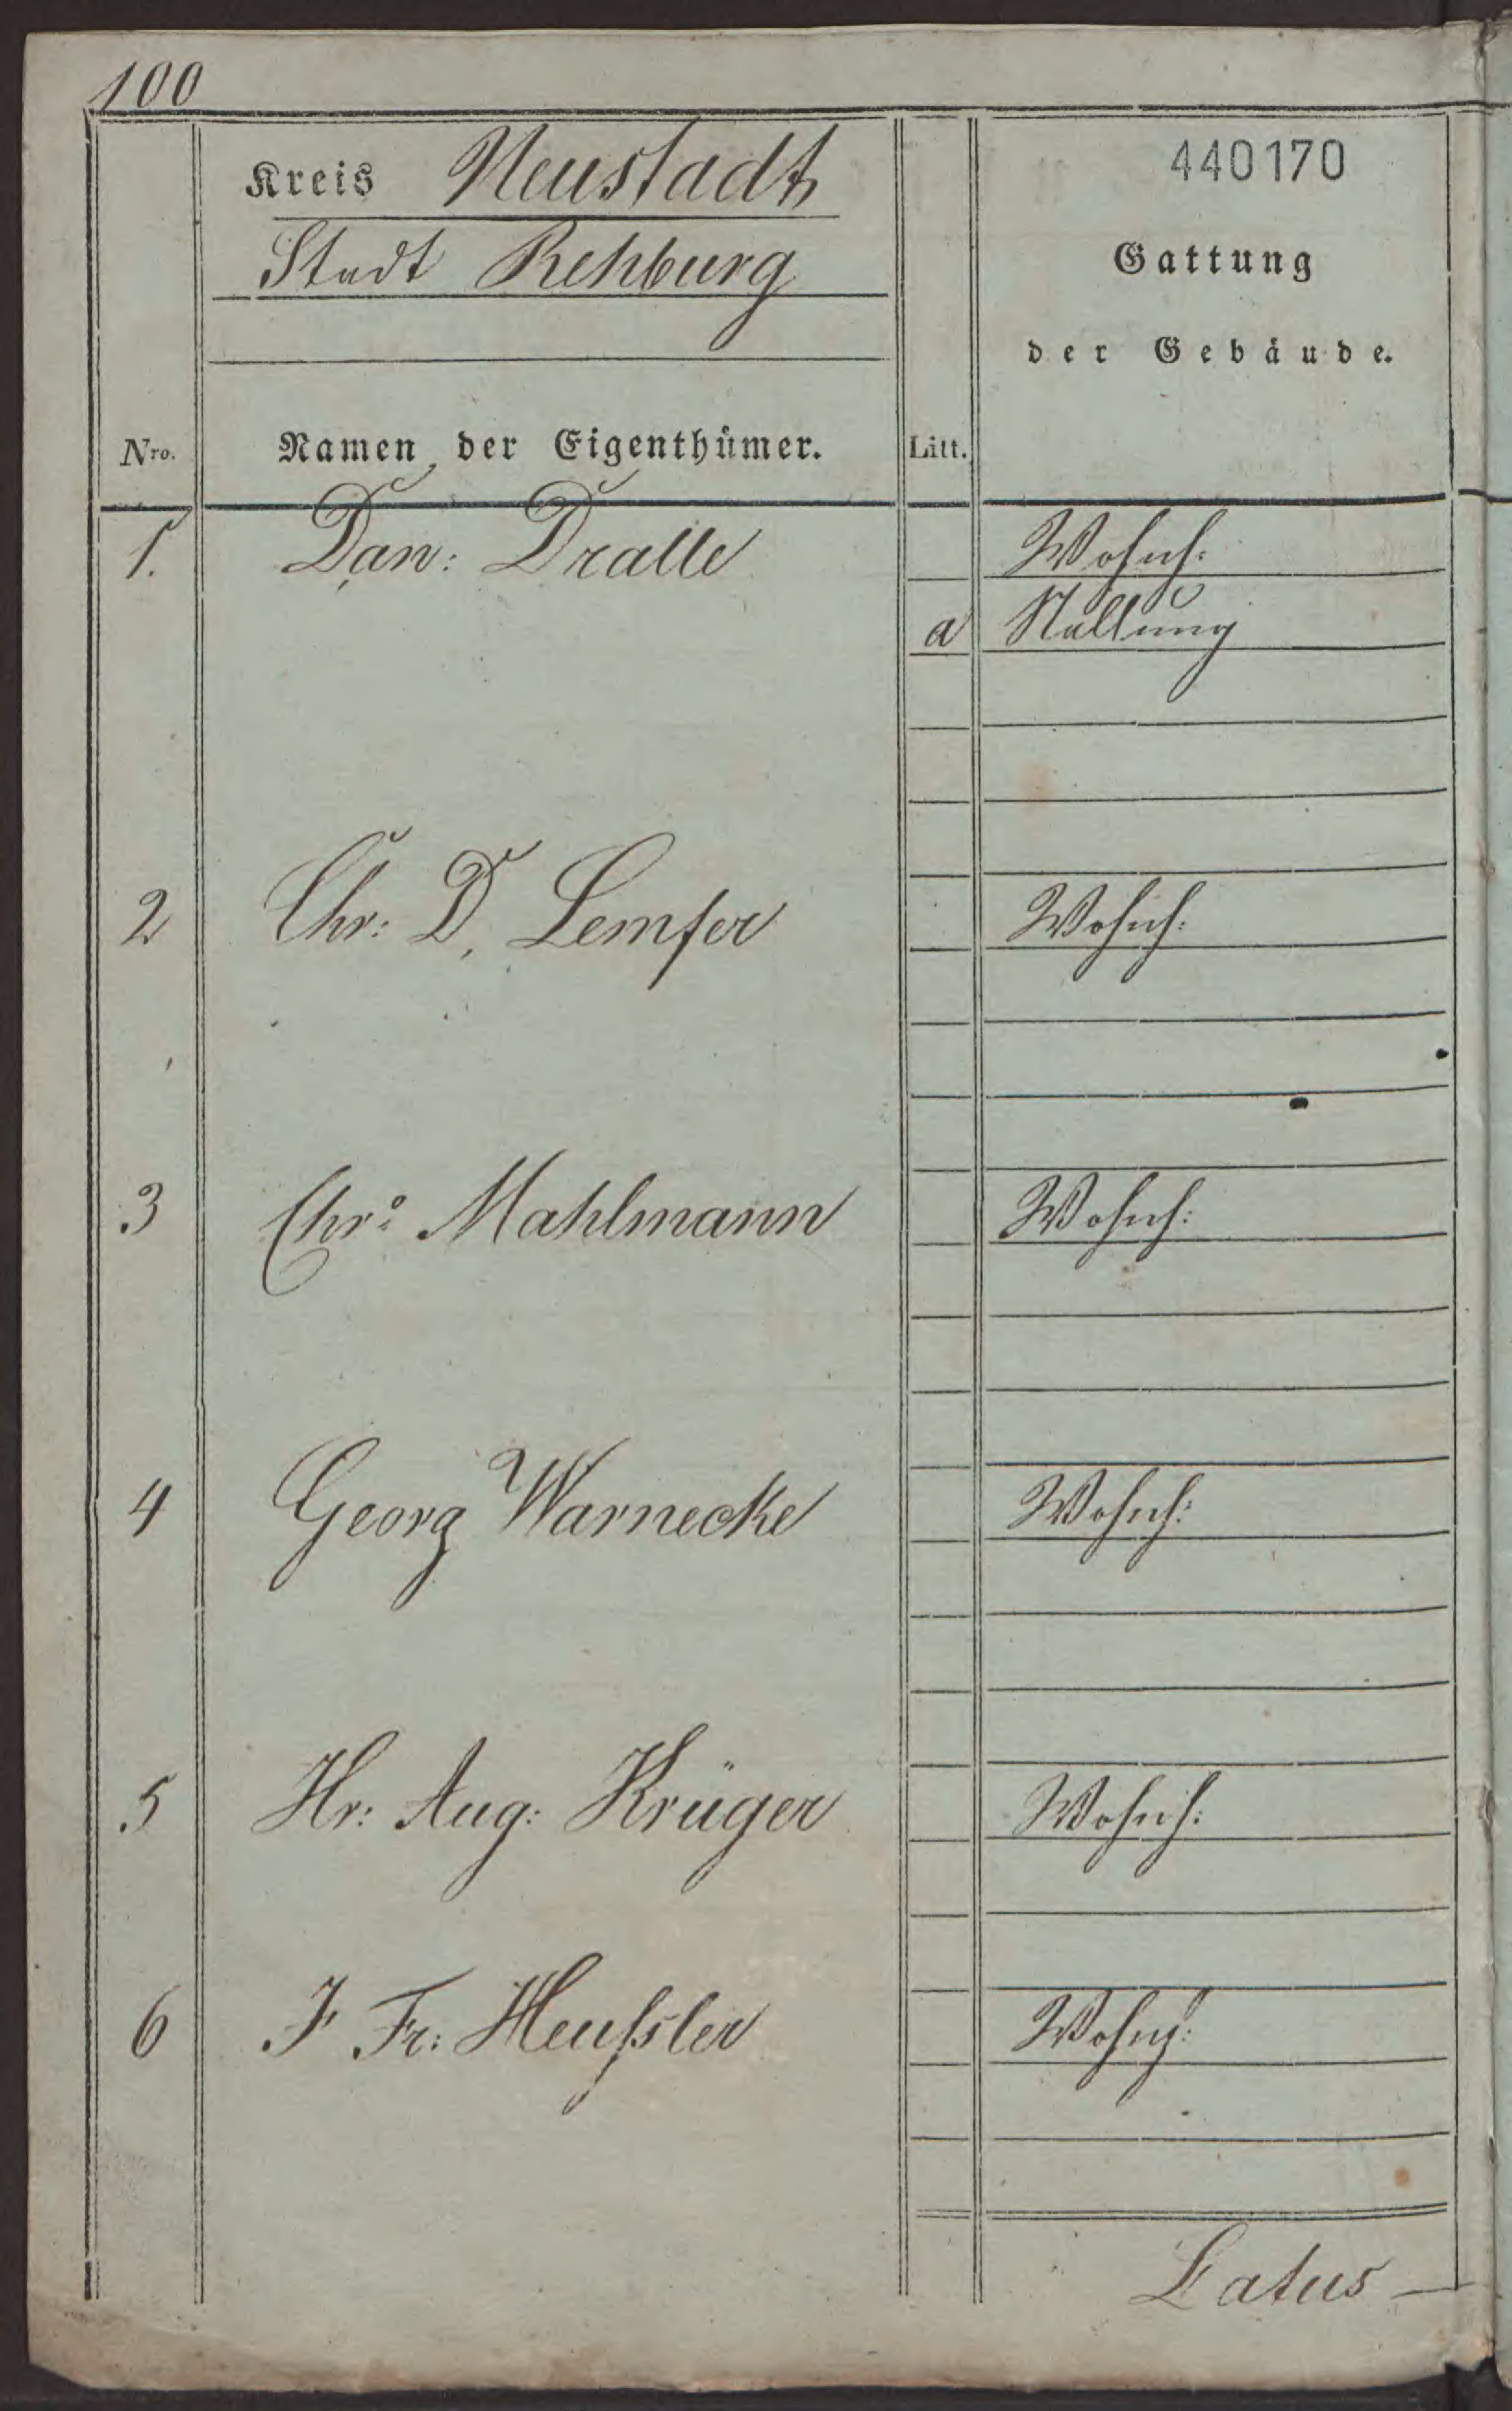 100
Kreis Neustadt
Stadt Rehburg
440170
Gattung
der Gebäude.
Nro. Namen der Eigenthümer. Litt.
1. Dan: Dralle Wohnh:
a Stallung
2 Chr: D. Lemfer Wohnh:
3 Chr: Mahlmann Wohnh:
4 Georg Warnecke Wohnh:
5 Hr: Aug: Krüger Wohnh:
6 F Fr: Heußler Wohnh:
Latus